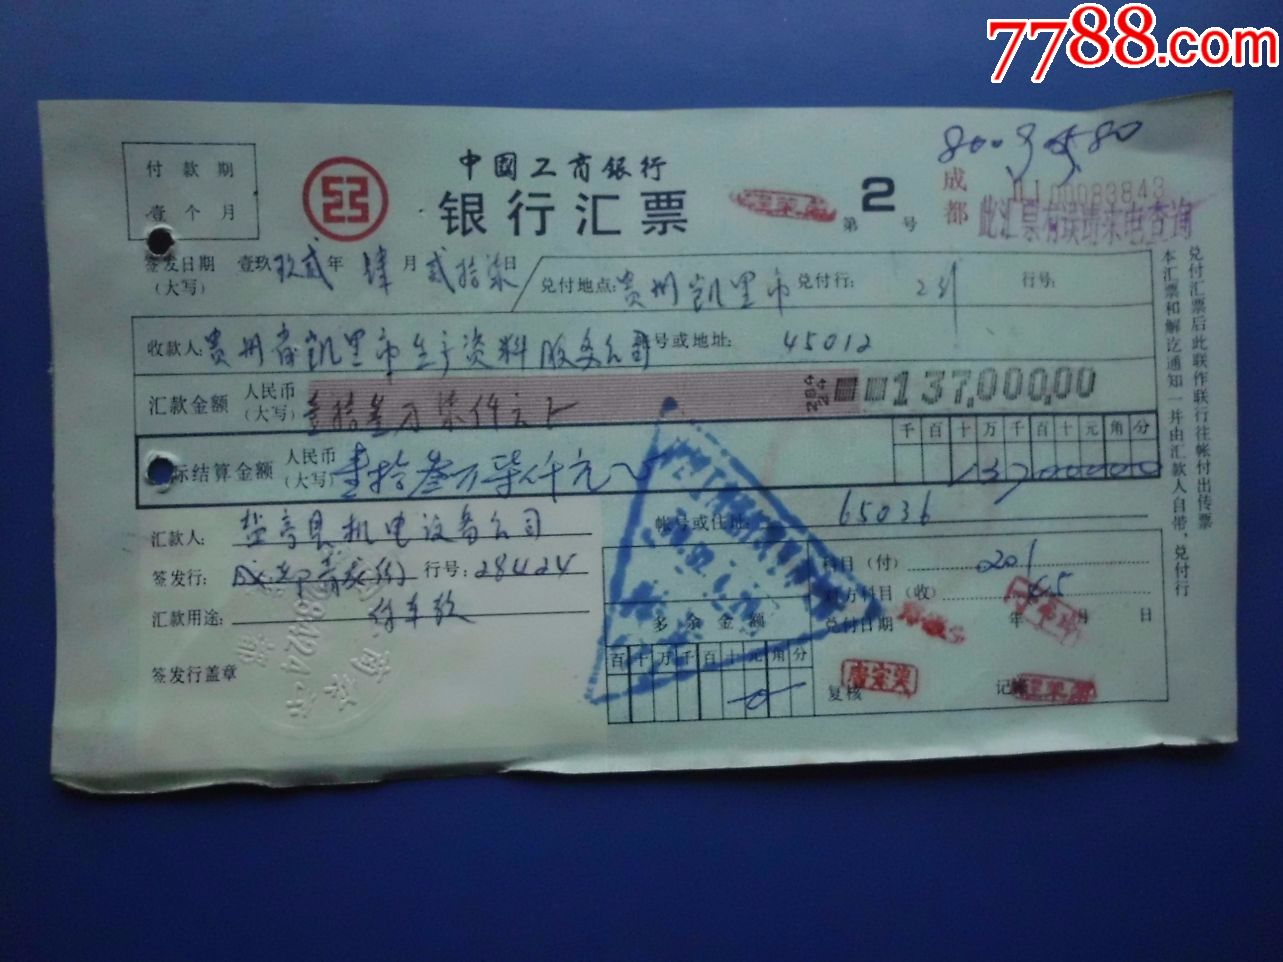 7788.com
800
成都
01 00083843
此汇票有误请来电查询
付款期
壹个月
中國工商银行
银行汇票
第 2 号
签发日期 壹玖玖贰年 肆月 贰拾柒日
(大写)
兑付地点: 贵州凯里市 兑付行: 行号:
收款人: 贵州省凯里市生产资料服务公司 号或地址: 45012
汇款金额 人民币
(大写) 壹拾叁万柒仟元
137,000.00
实际结算金额 人民币
(大写) 壹拾叁万柒仟元
千 百 十 万 千 百 十 元 角 分
13700000
汇款人: 盐亭县机电设备公司
帐号或住址: 65036
签发行: 行号: 28424
汇款用途: 付车款
签发行盖章
多余金额
百 十 万 千 百 十 元 角 分
0
科目(付) 201
对方科目(收)
兑付日期 年 月 日
复核 记帐
兑付汇票后此联作联行往帐付出传票
本汇票和解讫通知一并由汇款人自带,兑付行